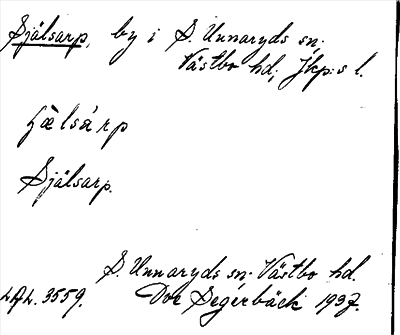 Själsarp, by i S. Unnaryds sn.
Västbo hd; Jkp:s l.
Själsarp.
S. Unnaryds sn. Västbo hd.
3559. Segerbäck 1937.